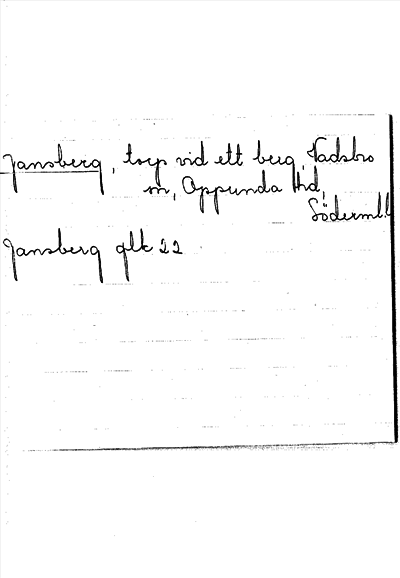 Jansberg, torp vid ett berg, Vadsbro
sn, Oppunda Hd,
Söderml.
Jansberg glk 22